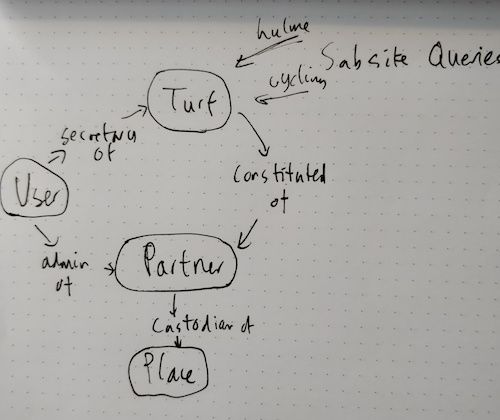 hulme
Subsite Queries
cycling
Turf
secretary
of
constituted
of
User
admin
of
Partner
Custodian of
Place